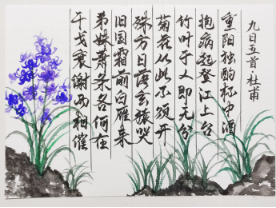 九日五首杜甫
重阳独酌杯中酒
抱病起登江上台
竹叶于人即无分
菊花从此不须开
殊方日落玄猿哭
旧国霜前白雁来
弟妹萧条各何在
干戈衰谢两相催